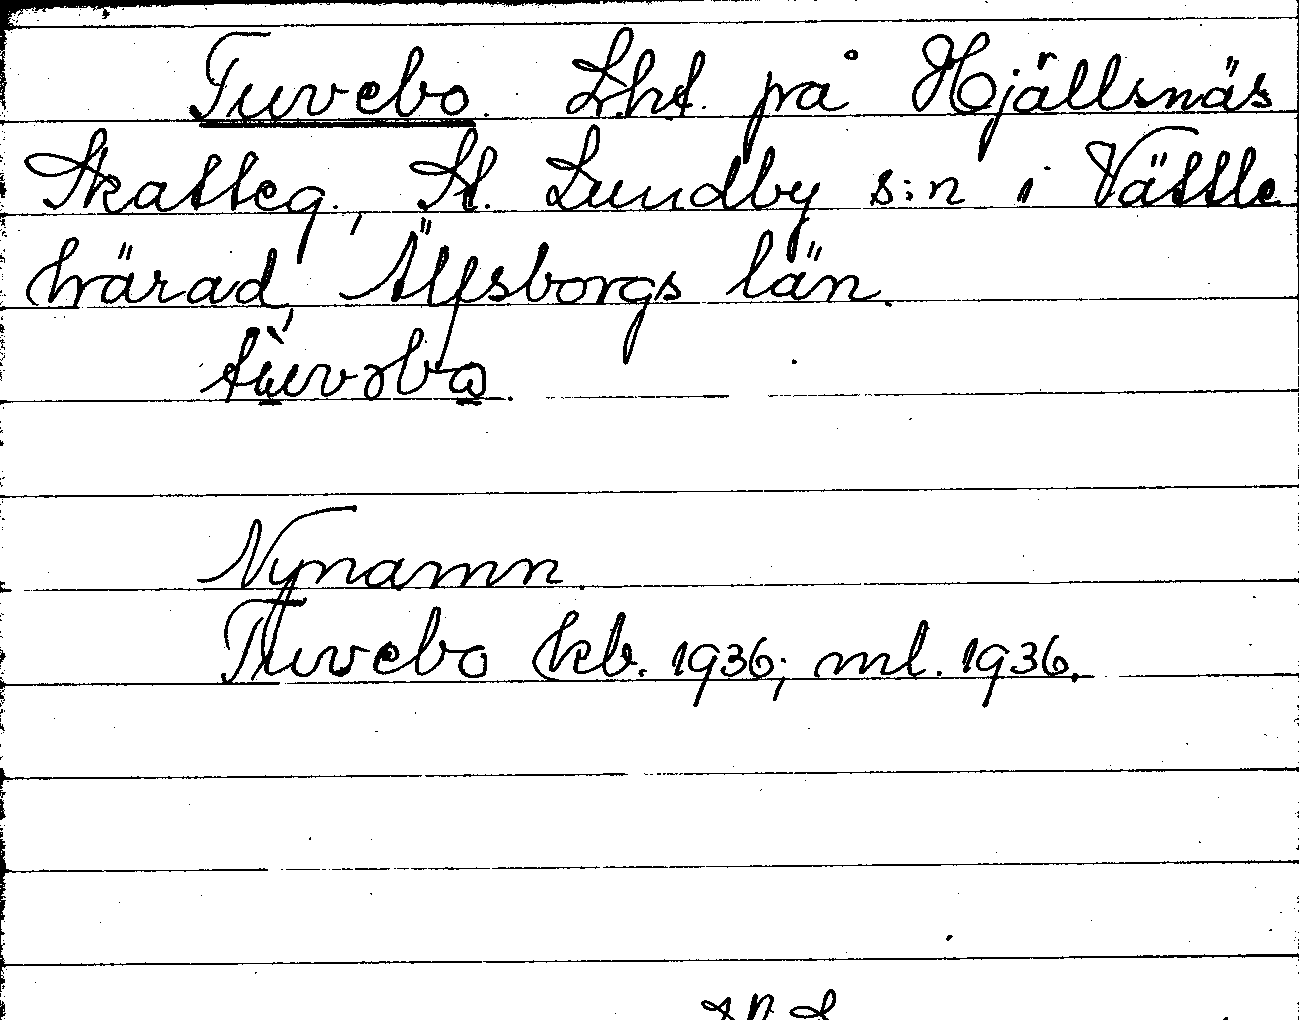 Tuvebo. Lht. på Hjällsnäs
Skatteg., St. Lundby s:n i Vättle
härad, Älfsborgs län.
Nynamn.
Tuvebo kb. 1936; ml. 1936.